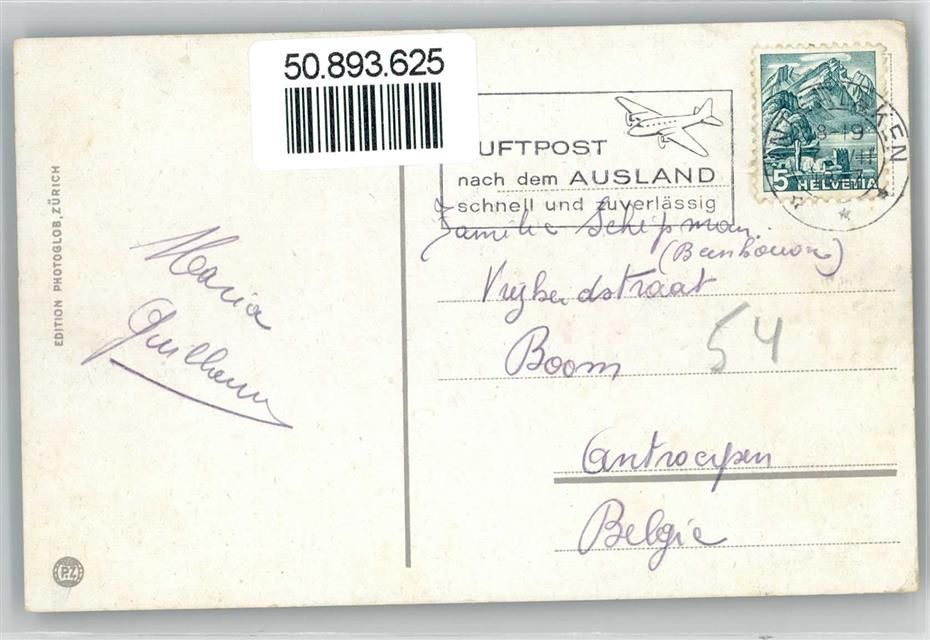 50.893.625
EDITION PHOTOGLOB, ZÜRICH
UFTPOST
nach dem AUSLAND
schnell und zuverlässig
KEN
8-19
VII
5 HELVETIA
Familie Schipman
Vrijheidstraat
Boom
54
Antwerpen
Belgie
Maria
PZ